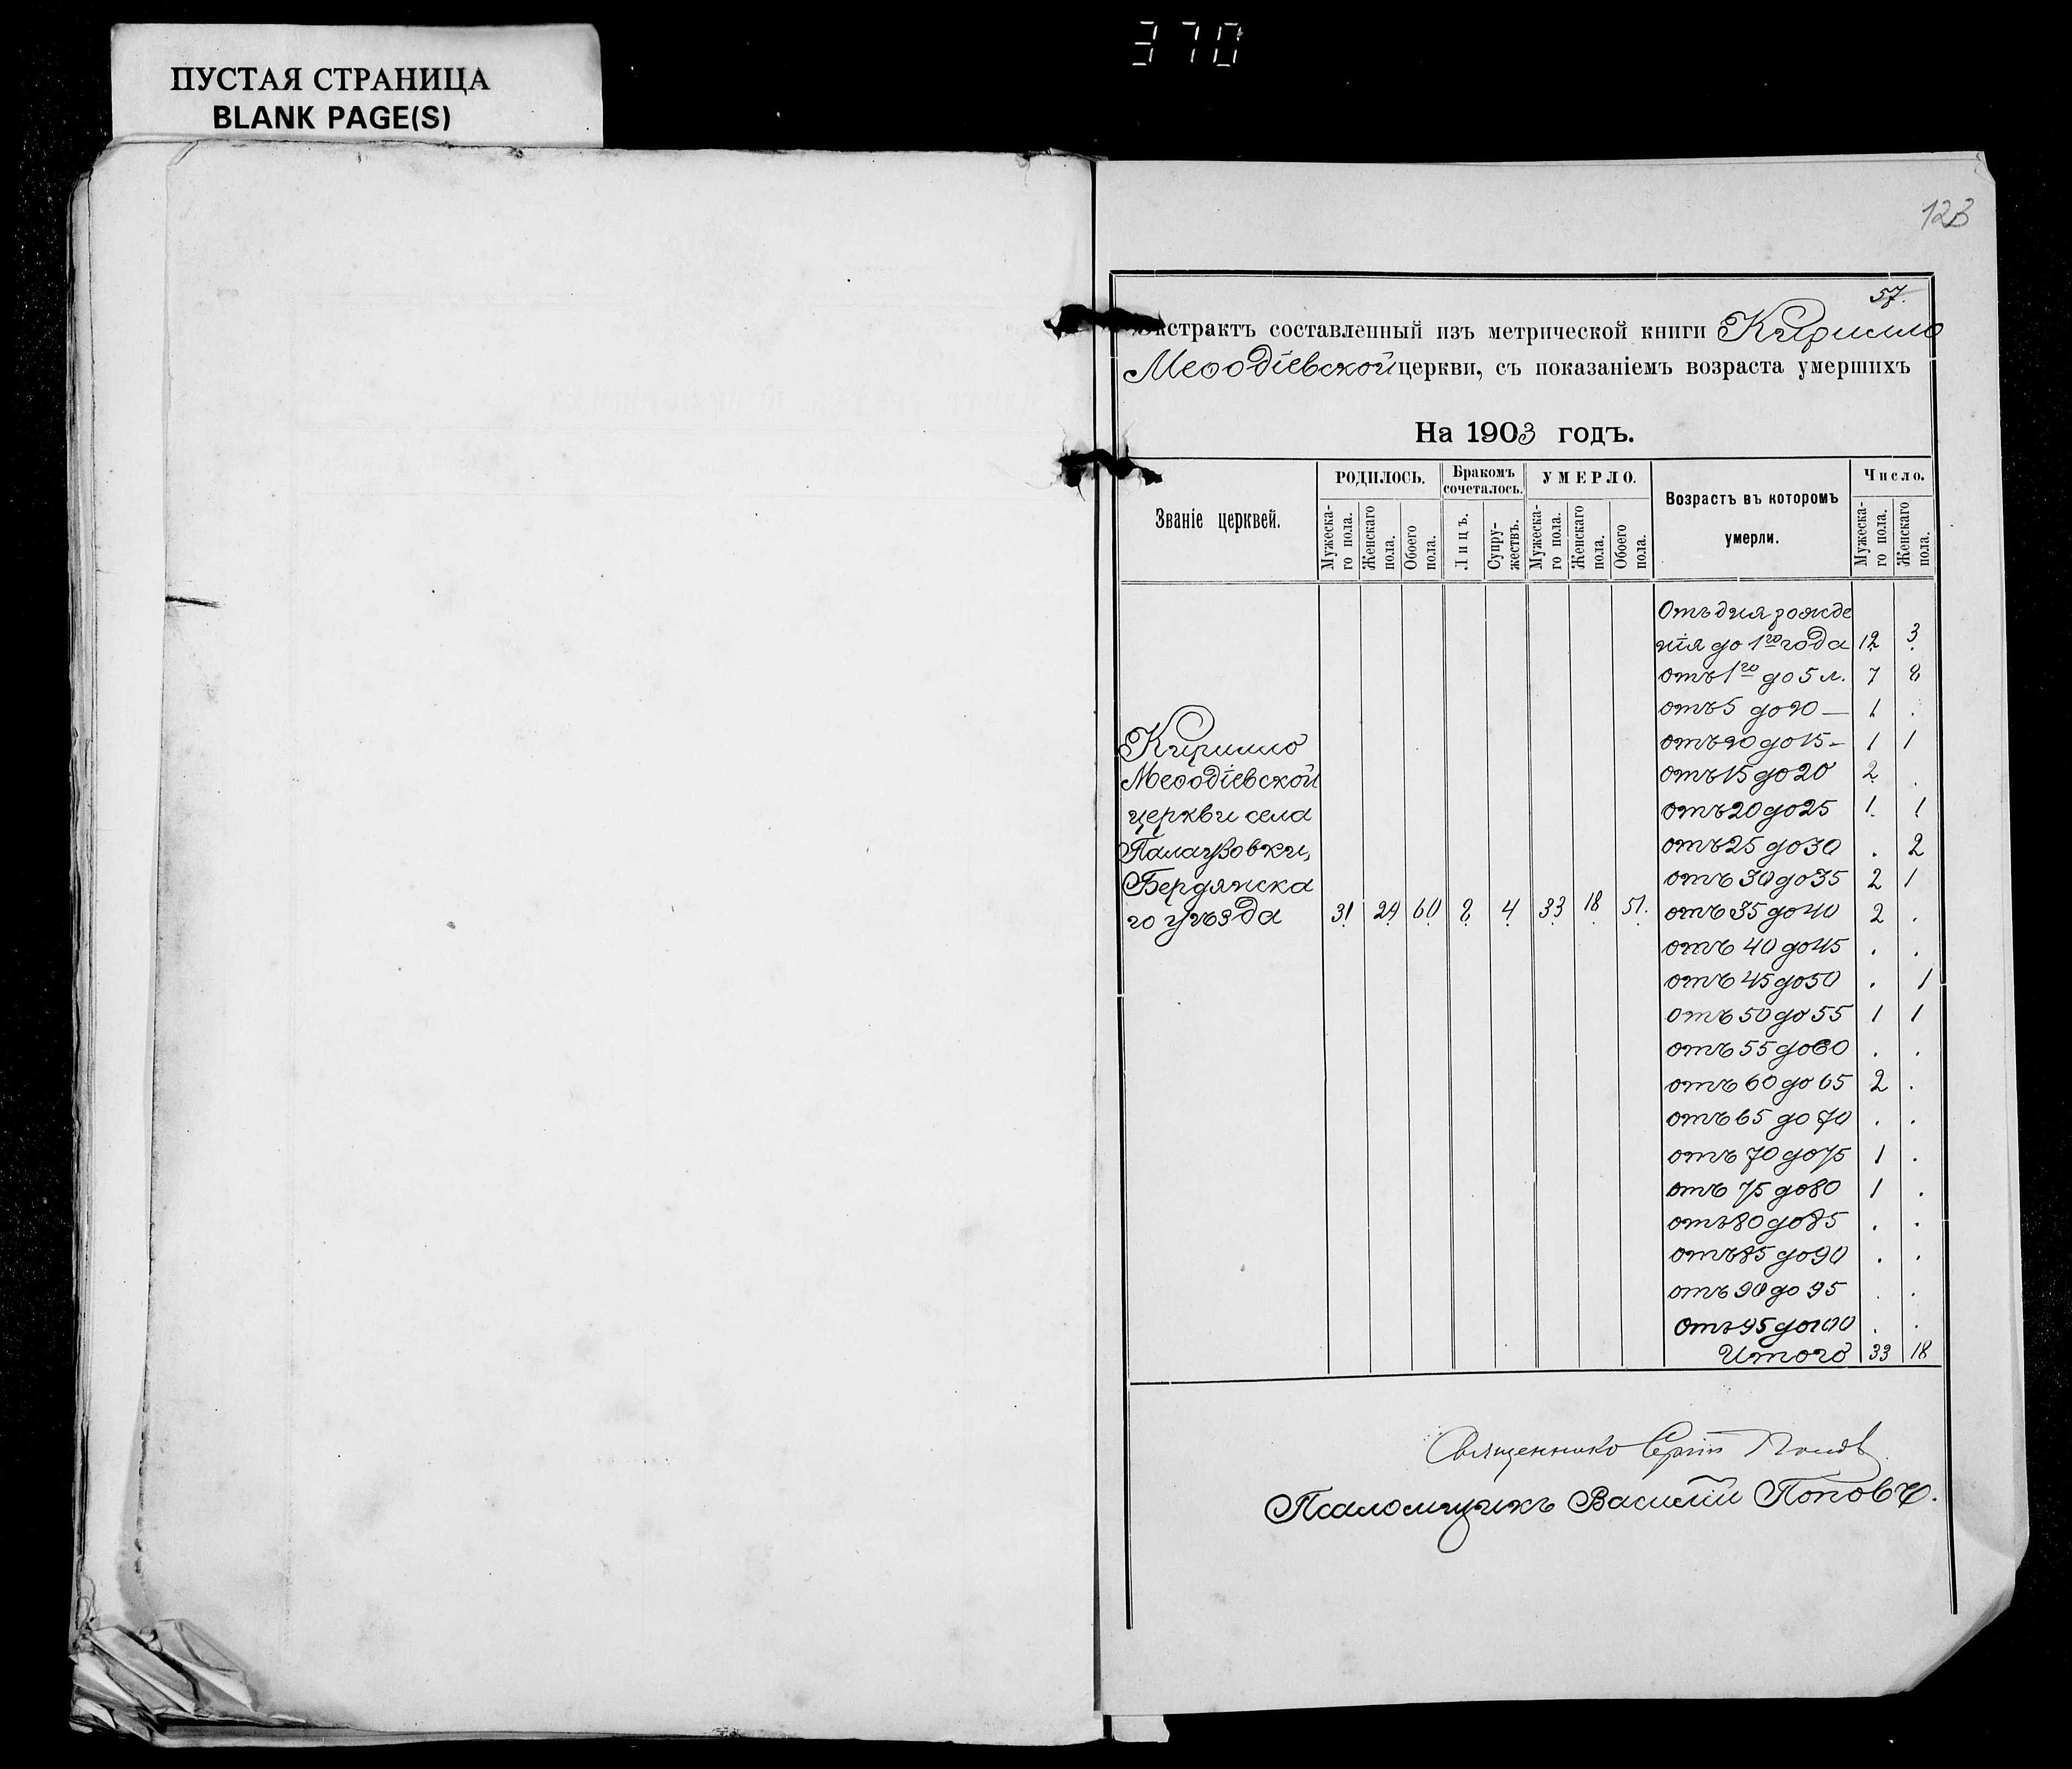 370
ПУСТАЯ СТРАНИЦА
BLANK PAGE(S)
123
57.
Экстрактъ составленный изъ метрической книги Кирилло
Меѳодіевской церкви, съ показаніемъ возраста умершихъ
На 1903 годъ.
Званіе церквей.
РОДИЛОСЬ.
Мужеска-го пола.
Женскаго пола.
Обоего пола.
Бракомъ сочеталось.
Лицъ.
Супру-жествъ.
УМЕРЛО.
Мужеска-го пола.
Женскаго пола.
Обоего пола.
Возрастъ въ которомъ умерли.
Число.
Мужеска-го пола.
Женскаго пола.
Кирилло
Меѳодіевской
церкви села
Палаузовки,
Бердянска
го уѣзда 31 29 60 8 4 33 18 51.
Отъ дня рожде
нія до 1го года 12 3
отъ 1го до 5 л. 7 8
отъ 5 до 10 — 1 .
отъ 10 до 15 - 1 1
отъ 15 до 20 2 .
отъ 20 до 25 1 1
отъ 25 до 30 . 2
отъ 30 до 35 2 1
отъ 35 до 40 2 .
отъ 40 до 45 . .
отъ 45 до 50 . 1
отъ 50 до 55 1 1
отъ 55 до 60 . .
отъ 60 до 65 2 .
отъ 65 до 70 . .
отъ 70 до 75 1 .
отъ 75 до 80 1 .
отъ 80 до 85 . .
отъ 85 до 90 . .
отъ 90 до 95 . .
отъ 95 до 100 . .
Итого 33 18
Священникъ Сергій Попов
Псаломщикъ Василій Поповъ.